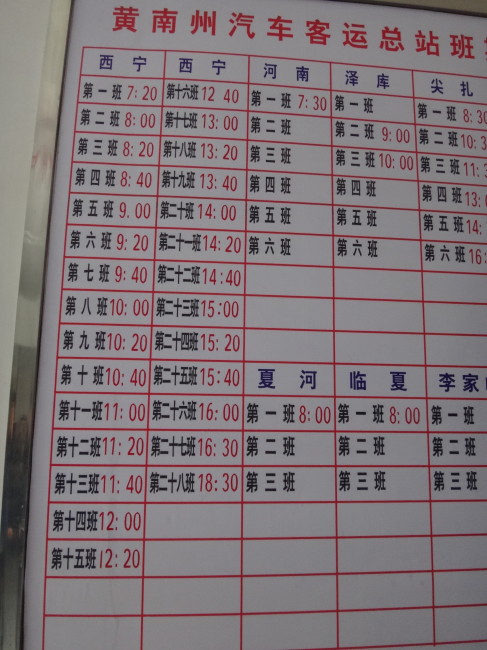 黄南州汽车客运总站班
西宁 西宁 河南 泽库 尖扎
第一班 7:20 第十六班 12 40 第一班 7:30 第一班 第一班 8:30
第二班 8:00 第十七班 13:00 第二班 第二班 9:00 第二班 10:3
第三班 8:20 第十八班 13:20 第三班 第三班 10:00 第三班 11:3
第四班 8:40 第十九班 13:40 第四班 第四班 第四班 13:
第五班 9.00 第二十班 14:00 第五班 第五班 第五班 14:
第六班 9:20 第二十一班 14:20 第六班 第六班 第六班 16:
第七班 9:40 第二十二班 14:40
第八班 10:00 第二十三班 15:00
第九班 10:20 第二十四班 15:20
第十班 10:40 第二十五班 15:40 夏河 临夏 李家
第十一班 11:00 第二十六班 16:00 第一班 8:00 第一班 8:00 第一班
第十二班 11:20 第二十七班 16:30 第二班 第二班 第二班
第十三班 11:40 第二十八班 18:30 第三班 第三班 第三班
第十四班 12:00
第十五班 12:20